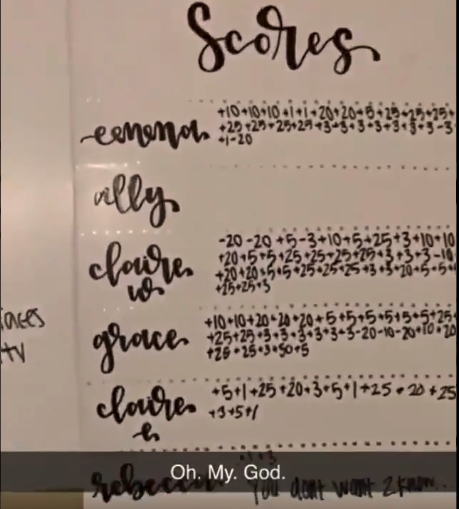 Scores
+10+10+10+1+1+20+20+5+25+25+25+
emma +25+25+25+25+3+3+3+3+3+3+3-3
+1-20
ally
-20-20+5-3+10+5+25+3+10+10
claire +20+5+5+25+25+25+25+3+3+3-10
w +20+20+5+5+25+25+25+3+3+20+5+5+
+25+25+3
+10+10+20+20+20+5+5+5+5+5+5+25+
grace +25+25+3+3+3+3+3+3-20-10-20+10+20
+25+25+3+50+5
claire +5+1+25+20+3+5+1+25+20+25
h +3+5+1
tv
Oh. My. God.
rebecca You dont want 2 know..